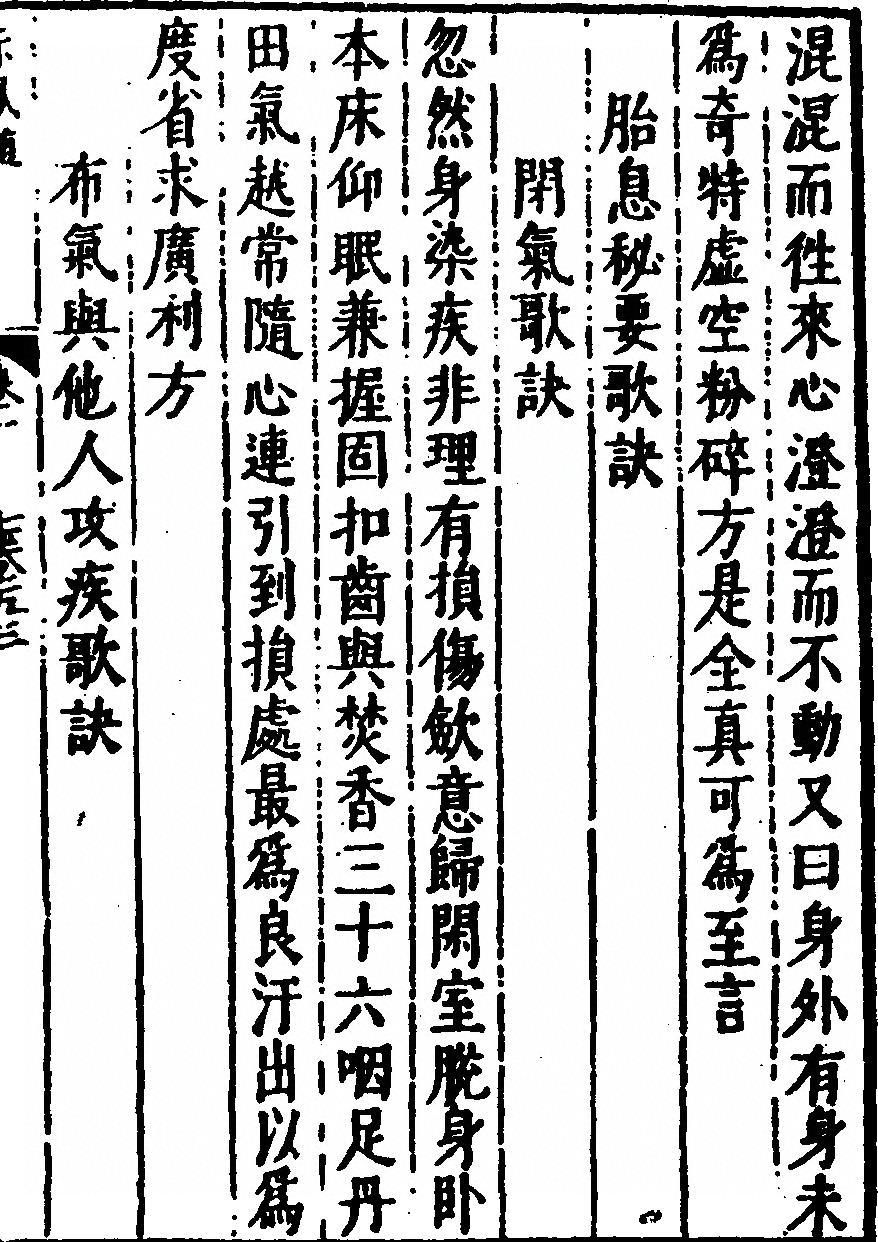 混混而徃來心澄澄而不動又曰身外有身未
爲奇特虛空粉碎方是全真可爲至言
胎息秘要歌訣
閉氣歌訣
忽然身染疾非理有損傷斂意歸閑室脫身卧
本床仰眠兼握固扣齒與焚香三十六咽足丹
田氣越常隨心連引到損處最爲良汗出以爲
度省求廣利方
布氣與他人攻疾歌訣